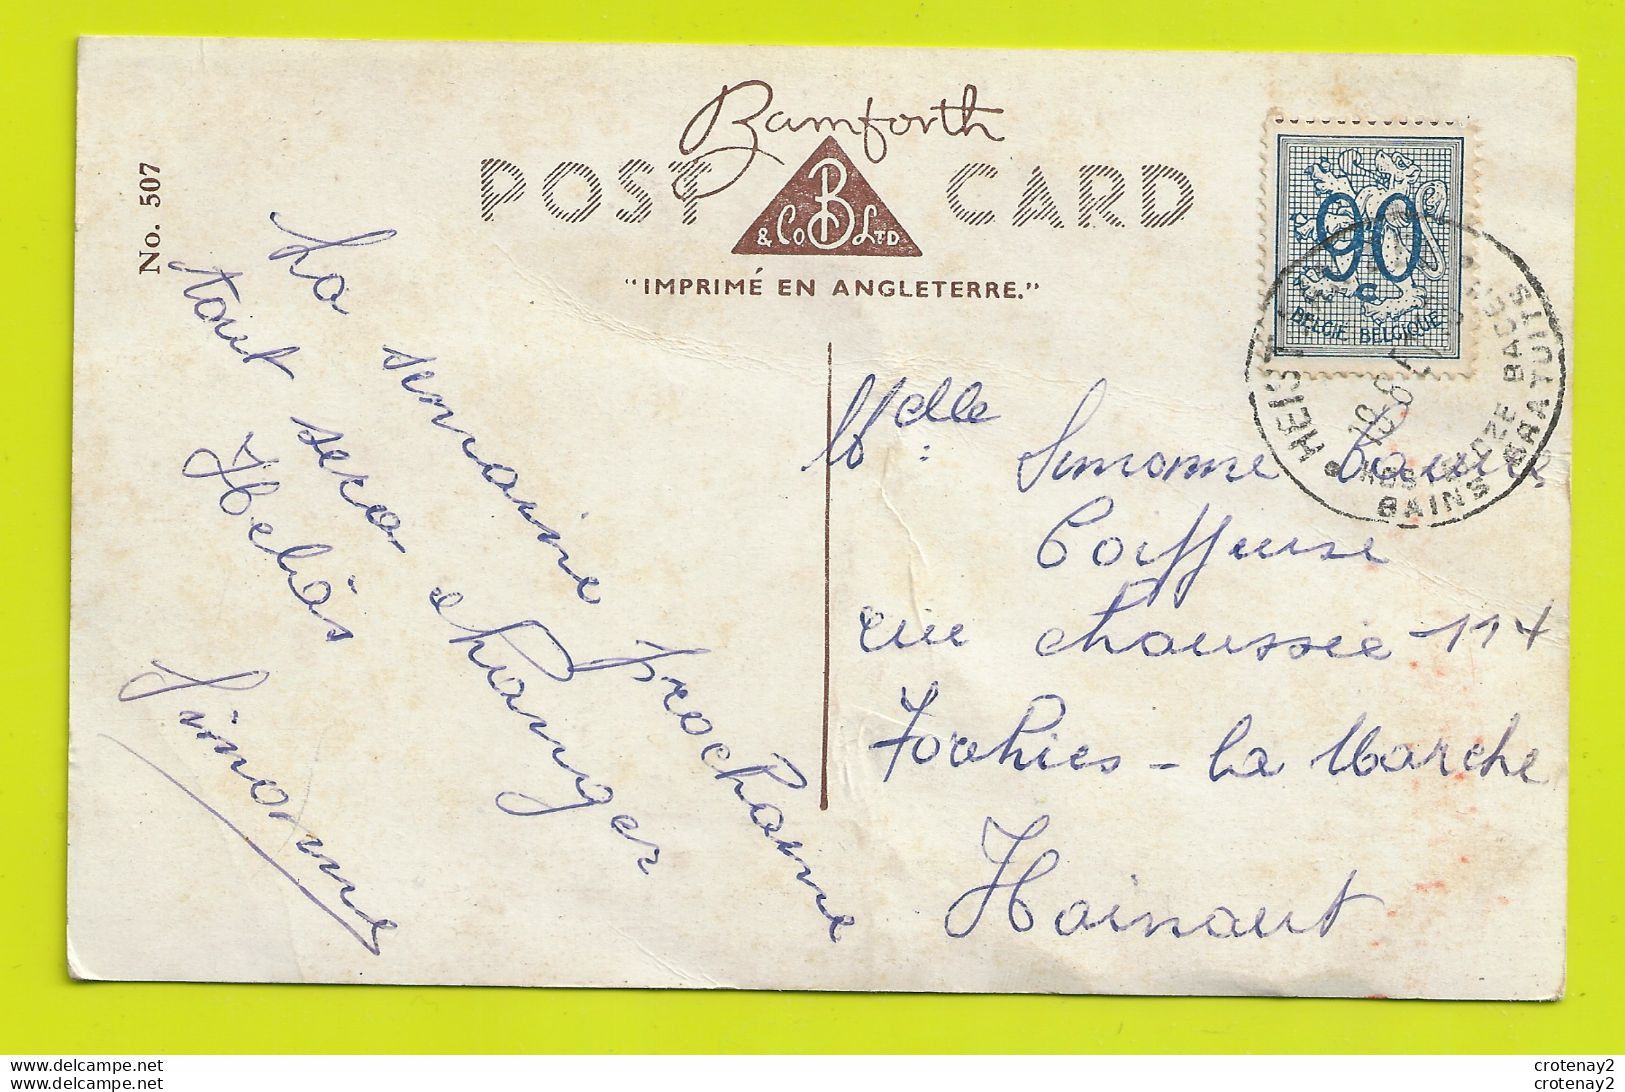 No. 507
Bamforth
POST CARD
B & Co Ltd
"IMPRIMÉ EN ANGLETERRE."
90
c
BELGIE BELGIQUE
HEIST
KOSTELOZE BADEN
BAINS GRATUITS
La semaine prochaine
tout sera changer
Helàs
Simonne
Melle Simonne
Coiffeuse
rue chaussée 114
Forchies-la Marche
Hainaut
crotenay2
www.delcampe.net
crotenay2